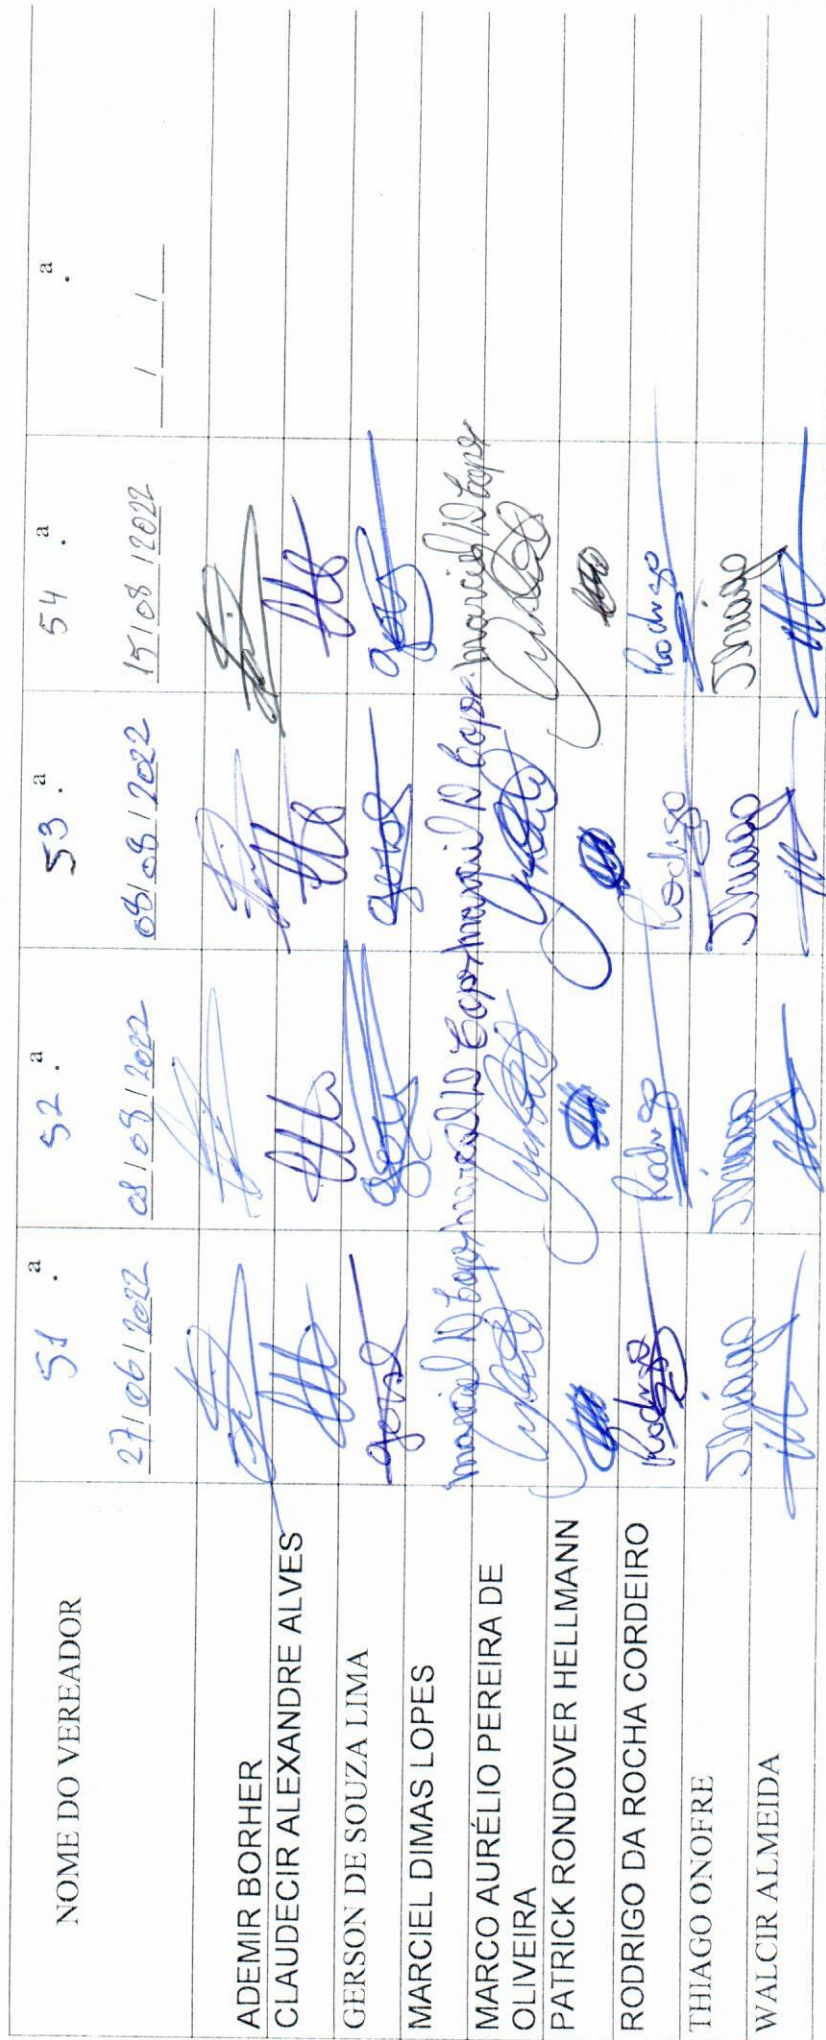 NOME DO VEREADOR
51.ª 52.ª 53.ª 54.ª .ª
27/06/2022 08/08/2022 08/08/2022 15/08/2022 / /
ADEMIR BORHER
CLAUDECIR ALEXANDRE ALVES
GERSON DE SOUZA LIMA
MARCIEL DIMAS LOPES
Marciel D Lopes Marciel D Lopes Marciel D Lopes Marciel D Lopes
MARCO AURÉLIO PEREIRA DE
OLIVEIRA
PATRICK RONDOVER HELLMANN
RODRIGO DA ROCHA CORDEIRO
Rodrigo Rodrigo Rodrigo Rodrigo
THIAGO ONOFRE
Thiago Thiago Thiago Thiago
WALCIR ALMEIDA